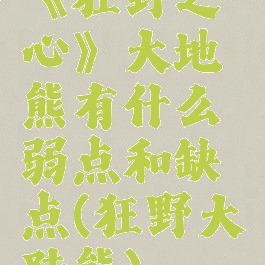 《狂野之
心》大地
熊有什么
弱点和缺
点(狂野大
陆熊)